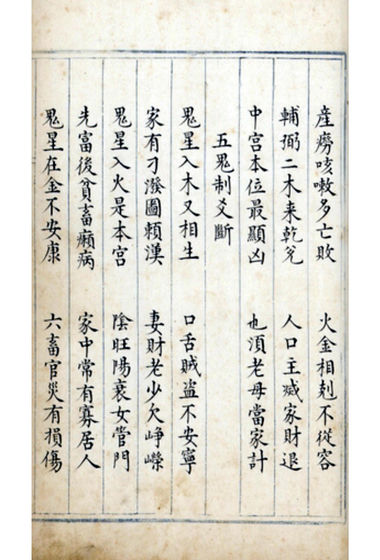 産癆咳嗽多亡敗　火金相剋不從容
輔弼二木来乾兌　人口主滅家財退
中宮本位最顯凶　也須老母當家計
五鬼制爻斷
鬼星入木又相生　口舌賊盗不安寧
家有刁潑圖頼漢　妻財老少欠崢嶸
鬼星入火是本宮　陰旺陽衰女管門
先富後貧畜癩病　家中常有寡居人
鬼星在金不安康　六畜官災有損傷